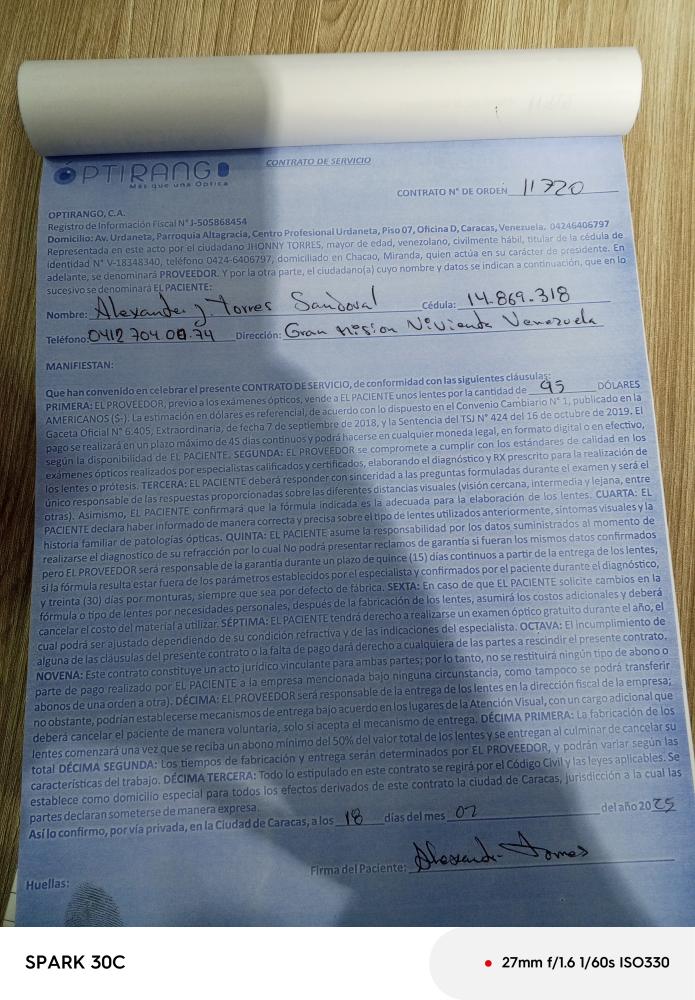 ÓPTIRANGO
Más que una Óptica
CONTRATO DE SERVICIO
CONTRATO N° DE ORDEN 11720
OPTIRANGO, C.A.
Registro de Información Fiscal N° J-505868454
Domicilio: Av. Urdaneta, Parroquia Altagracia, Centro Profesional Urdaneta, Piso 07, Oficina D, Caracas, Venezuela, 04246406797
Representada en este acto por el ciudadano JHONNY TORRES, mayor de edad, venezolano, civilmente hábil, titular de la cédula de
identidad N° V-18348340, teléfono 0424-6406797, domiciliado en Chacao, Miranda, quien actúa en su carácter de presidente. En
adelante, se denominará PROVEEDOR. Y por la otra parte, el ciudadano(a) cuyo nombre y datos se indican a continuación, que en lo
sucesivo se denominará EL PACIENTE:
Nombre: Alexander J. Torres Sandoval Cédula: 14.869.318
Teléfono: 0412 704 00.74 Dirección: Gran Mision Vivienda Venezuela
MANIFIESTAN:
Que han convenido en celebrar el presente CONTRATO DE SERVICIO, de conformidad con las siguientes cláusulas:
PRIMERA: EL PROVEEDOR, previo a los exámenes ópticos, vende a EL PACIENTE unos lentes por la cantidad de 95 DÓLARES
AMERICANOS ($-). La estimación en dólares es referencial, de acuerdo con lo dispuesto en el Convenio Cambiario N° 1, publicado en la
Gaceta Oficial N° 6.405, Extraordinaria, de fecha 7 de septiembre de 2018, y la Sentencia del TSJ N° 424 del 16 de octubre de 2019. El
pago se realizará en un plazo máximo de 45 días continuos y podrá hacerse en cualquier moneda legal, en formato digital o en efectivo,
según la disponibilidad de EL PACIENTE. SEGUNDA: EL PROVEEDOR se compromete a cumplir con los estándares de calidad en los
exámenes ópticos realizados por especialistas calificados y certificados, elaborando el diagnóstico y RX prescrito para la realización de
los lentes o prótesis. TERCERA: EL PACIENTE deberá responder con sinceridad a las preguntas formuladas durante el examen y será el
único responsable de las respuestas proporcionadas sobre las diferentes distancias visuales (visión cercana, intermedia y lejana, entre
otras). Asimismo, EL PACIENTE confirmará que la fórmula indicada es la adecuada para la elaboración de los lentes. CUARTA: EL
PACIENTE declara haber informado de manera correcta y precisa sobre el tipo de lentes utilizados anteriormente, síntomas visuales y la
historia familiar de patologías ópticas. QUINTA: EL PACIENTE asume la responsabilidad por los datos suministrados al momento de
realizarse el diagnostico de su refracción por lo cual No podrá presentar reclamos de garantía si fueran los mismos datos confirmados
pero EL PROVEEDOR será responsable de la garantía durante un plazo de quince (15) días continuos a partir de la entrega de los lentes,
si la fórmula resulta estar fuera de los parámetros establecidos por el especialista y confirmados por el paciente durante el diagnóstico,
y treinta (30) días por monturas, siempre que sea por defecto de fábrica. SEXTA: En caso de que EL PACIENTE solicite cambios en la
fórmula o tipo de lentes por necesidades personales, después de la fabricación de los lentes, asumirá los costos adicionales y deberá
cancelar el costo del material a utilizar. SÉPTIMA: EL PACIENTE tendrá derecho a realizarse un examen óptico gratuito durante el año, el
cual podrá ser ajustado dependiendo de su condición refractiva y de las indicaciones del especialista. OCTAVA: El incumplimiento de
alguna de las cláusulas del presente contrato o la falta de pago dará derecho a cualquiera de las partes a rescindir el presente contrato.
NOVENA: Este contrato constituye un acto jurídico vinculante para ambas partes; por lo tanto, no se restituirá ningún tipo de abono o
parte de pago realizado por EL PACIENTE a la empresa mencionada bajo ninguna circunstancia, como tampoco se podrá transferir
abonos de una orden a otra). DÉCIMA: EL PROVEEDOR será responsable de la entrega de los lentes en la dirección fiscal de la empresa;
no obstante, podrían establecerse mecanismos de entrega bajo acuerdo en los lugares de la Atención Visual, con un cargo adicional que
deberá cancelar el paciente de manera voluntaria, solo si acepta el mecanismo de entrega. DÉCIMA PRIMERA: La fabricación de los
lentes comenzará una vez que se reciba un abono mínimo del 50% del valor total de los lentes y se entregan al culminar de cancelar su
total DÉCIMA SEGUNDA: Los tiempos de fabricación y entrega serán determinados por EL PROVEEDOR, y podrán variar según las
características del trabajo. DÉCIMA TERCERA: Todo lo estipulado en este contrato se regirá por el Código Civil y las leyes aplicables. Se
establece como domicilio especial para todos los efectos derivados de este contrato la ciudad de Caracas, jurisdicción a la cual las
partes declaran someterse de manera expresa.
Así lo confirmo, por vía privada, en la Ciudad de Caracas, a los 18 días del mes 02 del año 2025
Firma del Paciente: Alexander Torres
Huellas:
SPARK 30C
27mm f/1.6 1/60s ISO330